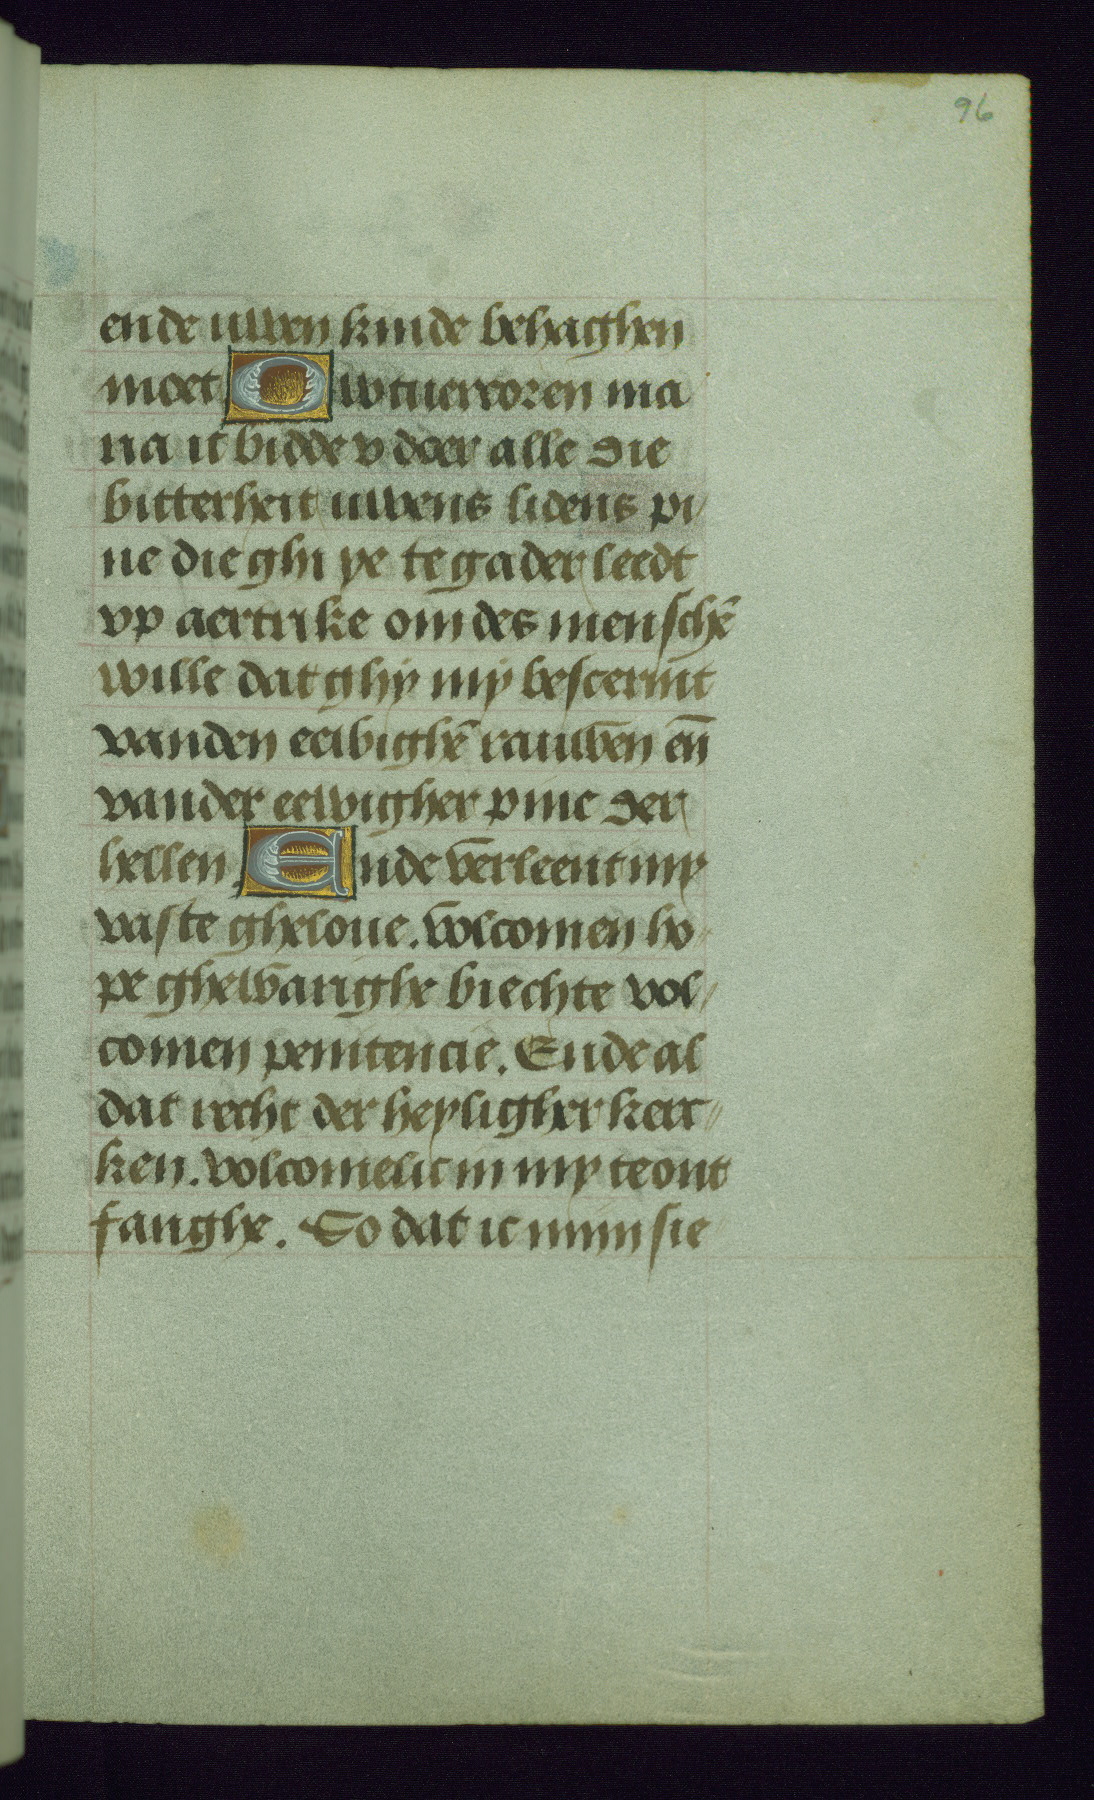 96
ende uwen kinde behaghen
moet O wtuercoren ma
ria ic bidde v doer alle die
bitterheit uwens lidens pi
ne die ghi ye tegader leedt
vp aertrike om des menschē
wille dat ghy my bescermt
vanden eewighē rauwen en̄
vander eewigher pine der
hellen. Ende verleent my
vaste gheloue. volcomen ho
pe ghewarighe biechte vol/
comen penitencie. Ende al
dat recht der heyligher kerc//
ken. volcomelic in my te ont
fanghe. So dat ic mijn sie